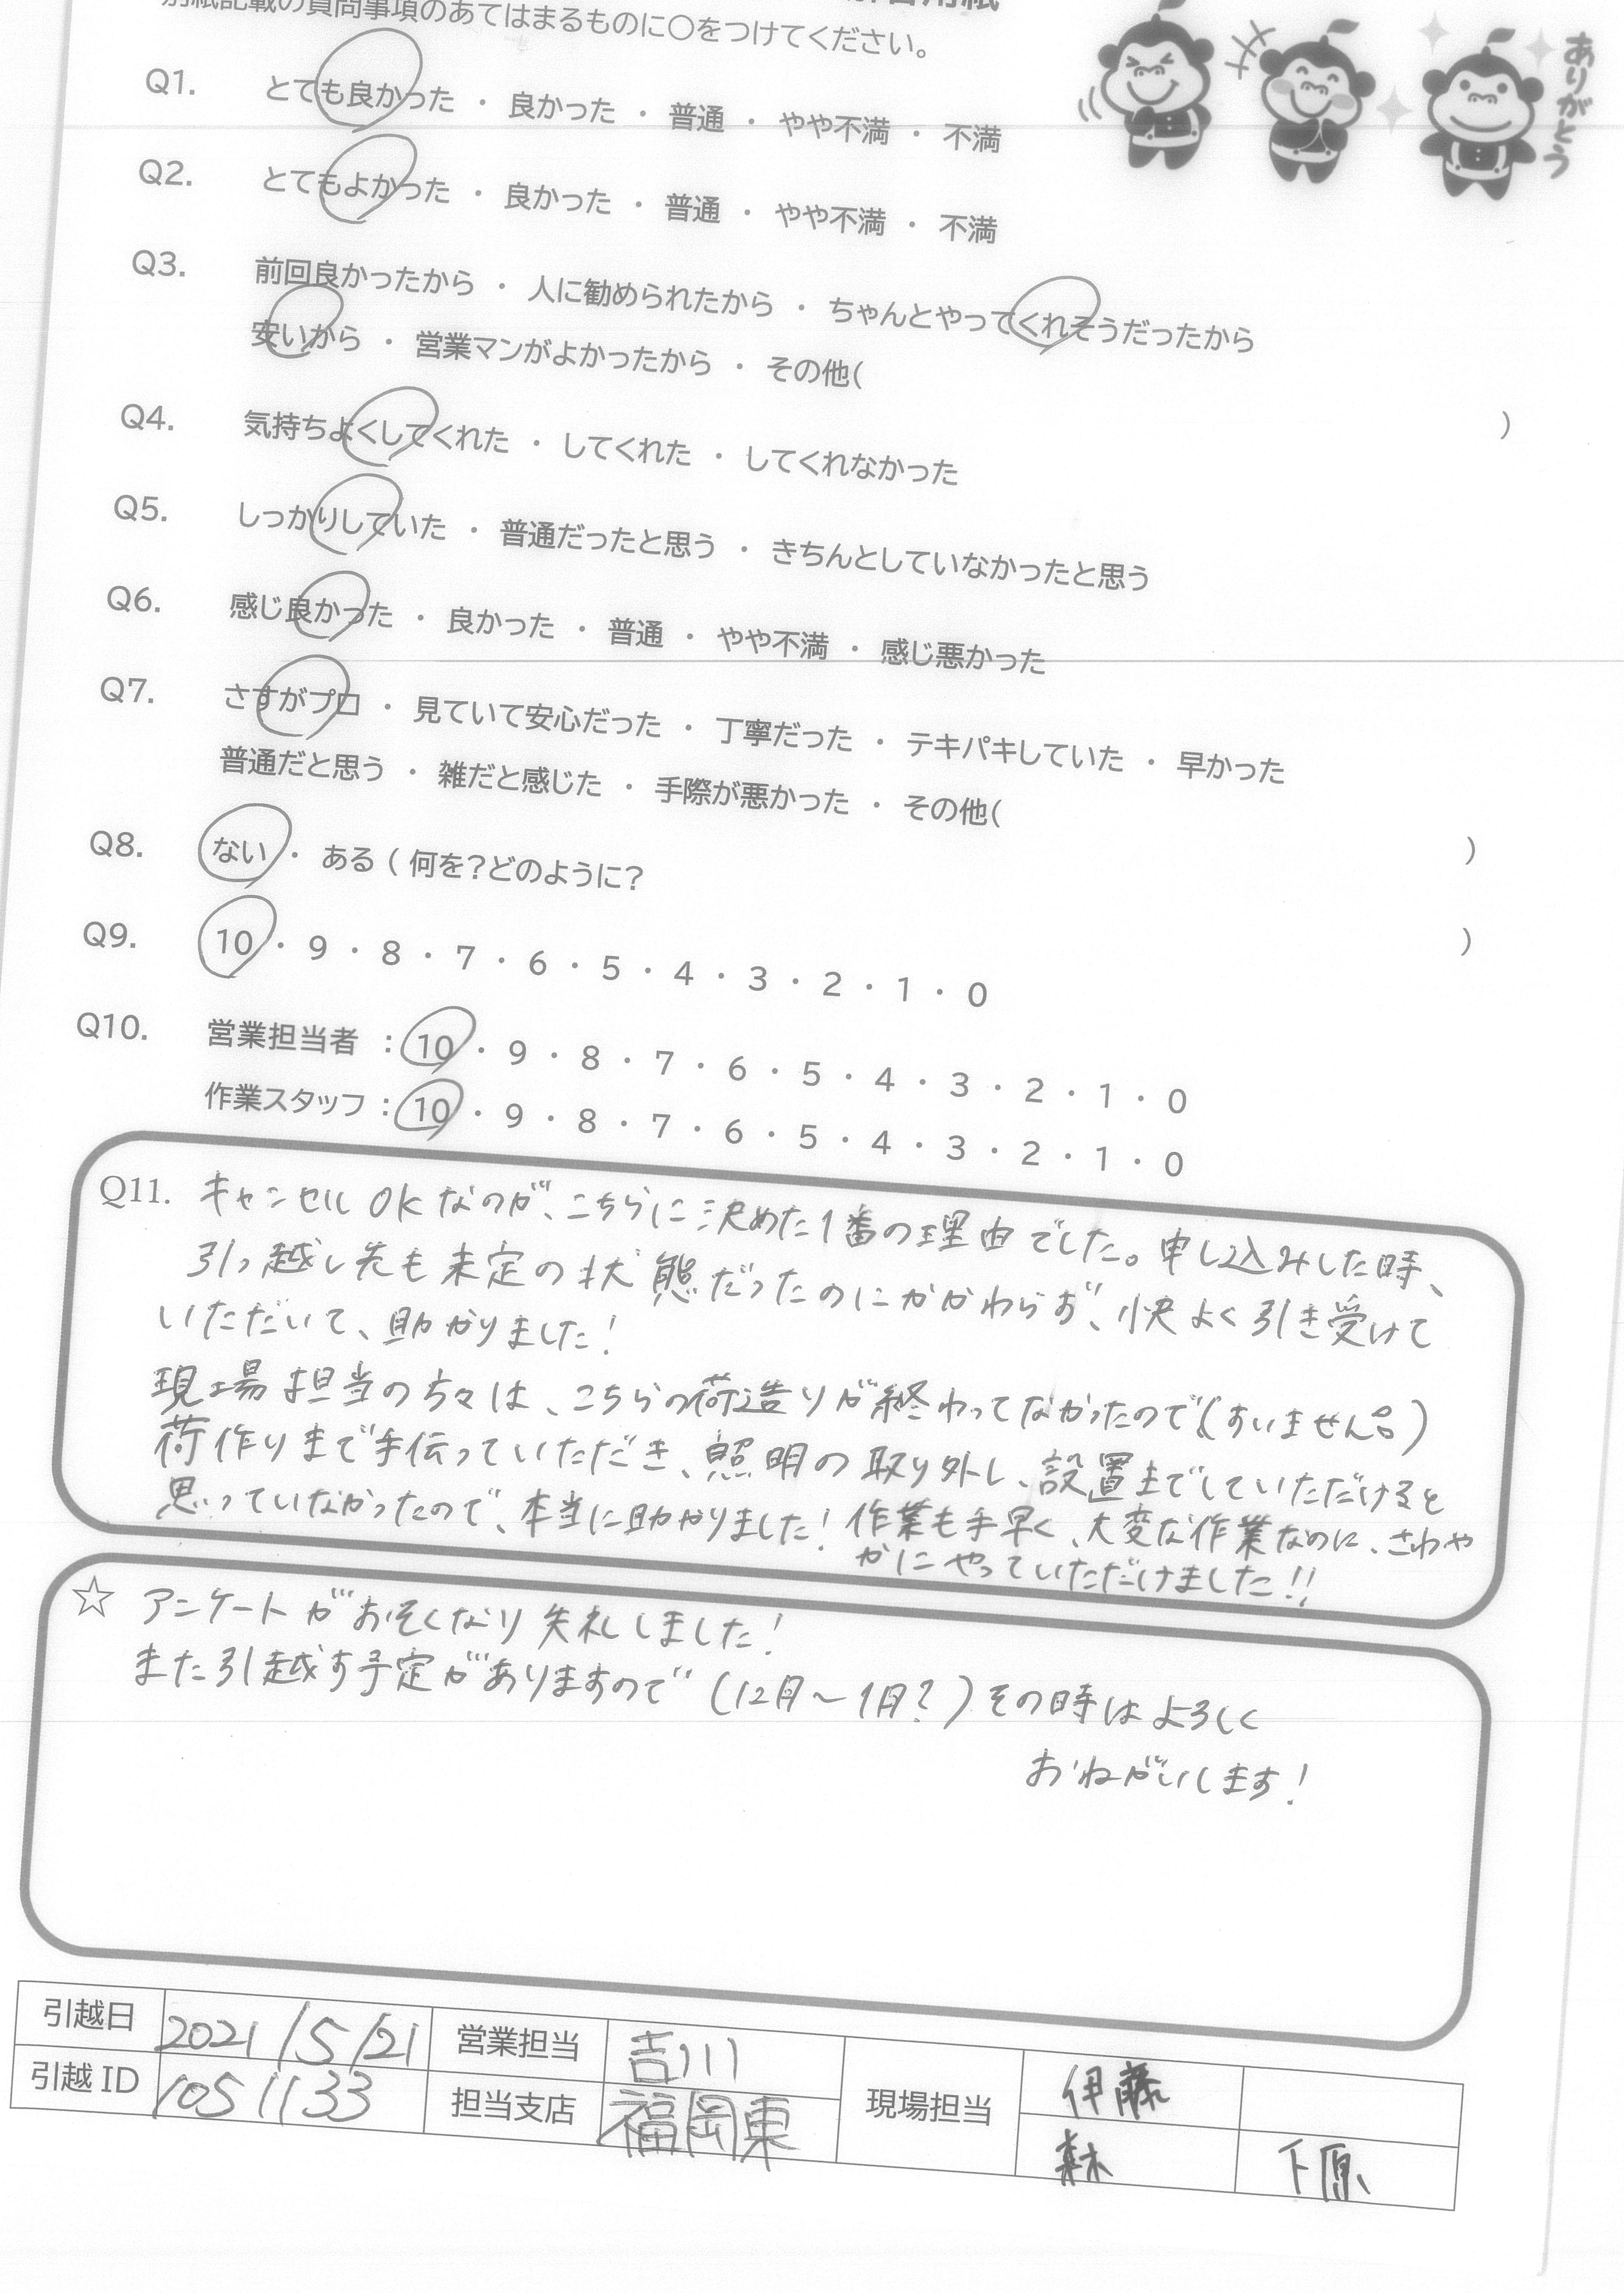 別紙記載の質問事項のあてはまるものに○をつけてください。
ありがとう
Q1. とても良かった ・ 良かった ・ 普通 ・ やや不満 ・ 不満
Q2. とてもよかった ・ 良かった ・ 普通 ・ やや不満 ・ 不満
Q3. 前回良かったから ・ 人に勧められたから ・ ちゃんとやってくれそうだったから
安いから ・ 営業マンがよかったから ・ その他( )
Q4. 気持ちよくしてくれた ・ してくれた ・ してくれなかった
Q5. しっかりしていた ・ 普通だったと思う ・ きちんとしていなかったと思う
Q6. 感じ良かった ・ 良かった ・ 普通 ・ やや不満 ・ 感じ悪かった
Q7. さすがプロ ・ 見ていて安心だった ・ 丁寧だった ・ テキパキしていた ・ 早かった
普通だと思う ・ 雑だと感じた ・ 手際が悪かった ・ その他( )
Q8. ない ・ ある ( 何を?どのように? )
Q9. 10 ・ 9 ・ 8 ・ 7 ・ 6 ・ 5 ・ 4 ・ 3 ・ 2 ・ 1 ・ 0
Q10. 営業担当者 : 10 ・ 9 ・ 8 ・ 7 ・ 6 ・ 5 ・ 4 ・ 3 ・ 2 ・ 1 ・ 0
作業スタッフ : 10 ・ 9 ・ 8 ・ 7 ・ 6 ・ 5 ・ 4 ・ 3 ・ 2 ・ 1 ・ 0
Q11. キャンセルOKなのが、こちらに決めた1番の理由でした。申し込みした時、
引っ越し先も未定の状態だったのにかかわらず、快よく引き受けて
いただいて、助かりました!
現場担当の方々は、こちらの荷造りが終わってなかったので(すいません。)
荷作りまで手伝っていただき、照明の取り外し、設置までしていただけると
思っていなかったので、本当に助かりました! 作業も手早く、大変な作業なのに、さわや
かにやっていただけました!!
☆ アンケートがおそくなり失礼しました!
また引越す予定がありますので (12月〜1月?) その時はよろしく
おねがいします!
引越日 2021/5/21 営業担当 吉川 現場担当 伊藤
引越ID 1051133 担当支店 福岡東 森 下原